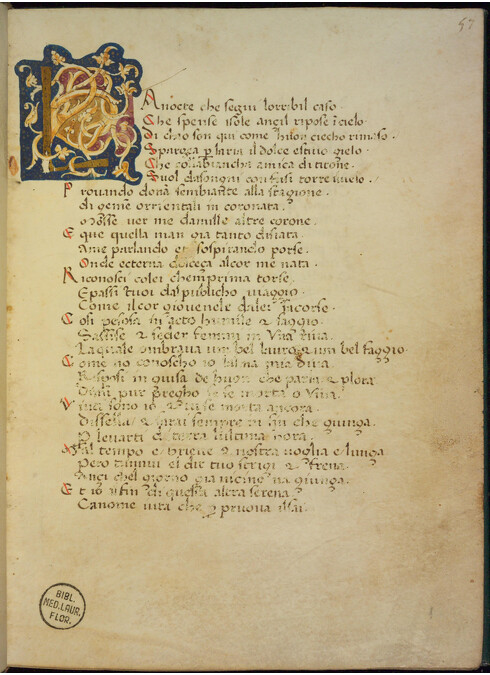 57
LA nocte che segui lorribil caso
Che spense il sole ançil ripose icielo
Di chio son qui come huom ciecho rimaso.
Spargea p laria il dolce estiuo gielo
Che colla biancha amica di titone.
Suol da sogni confusi torre iluelo.
Prouando donna sembiante alla stagione.
di geme orrientali in coronata.
mosse ver me damille altre corone.
E que quella man gia tanto disiata
Ame parlando et sospirando porse.
Onde ecterna dolceça alcor me nata.
Riconosci colei chemprima torse
Epassi tuoi dal publicho viaggio.
Come ilcor giouenele dilei saccorse.
Cosi pensosa in acto humile & saggio.
Sassise & seder femmi in vna riua.
Laquale ombraua vn bel lauro & vn bel faggio
Come no conoscho io lalma mia diua.
Risposi in guisa de huom che parla & plora
Dimi pur pregho se se morta o viua.
Viua sono io & tu se morto ancora.
Dissella & sarai sempre in fin che giunga.
P leuarti di terra lultima hora.
Mal tempo e brieue & nostra voglia e lunga
Pero el dir tuo strigi & frena.
Ançi chel giorno gia uicino na giunga.
Et io fin di questa altra serena
Ca nome vita che p pruoua il sai.
BIBL.
MED. LAUR.
FLOR.